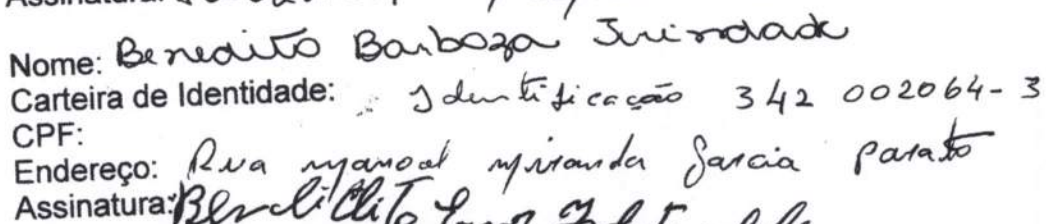 Assinatura:
Nome: Benedito Barboza Trindade
Carteira de Identidade: Identificação 342 002064-3
CPF:
Endereço: Rua manoel miranda Garcia Parato
Assinatura: